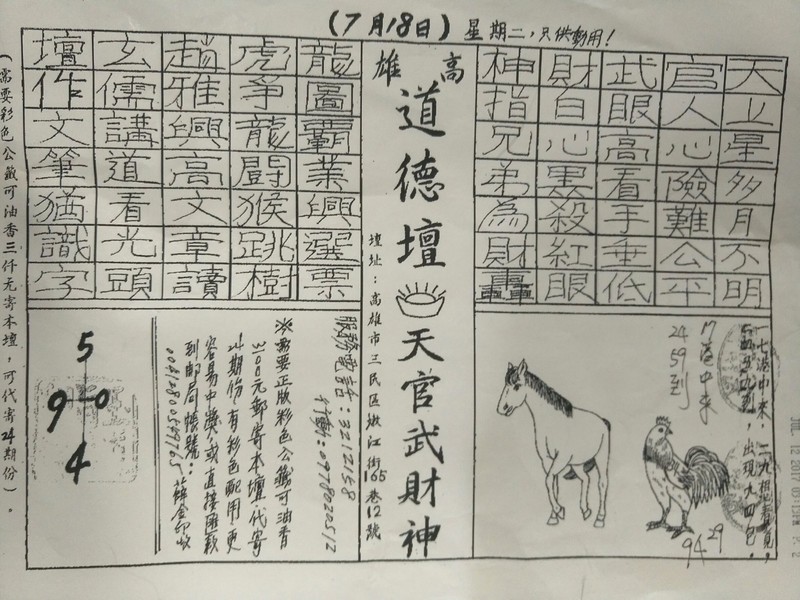 (7月18日) 星期二，只供參用！
天上星多月不明
官人心險難公平
武眼高看手垂低
財白心黑殺紅眼
神指兄弟為財轟
高雄
道德壇
天官武財神
壇址：高雄市三民區嫩江街165巷12號
龍圖霸業興選票
虎爭龍鬪猴跳樹
趙雅興高文章讀
玄儒講道看光頭
壇作文筆猶識字
(需要彩色公籤可油香三仟元寄本壇，可代寄24期份)。
二九相把看見，
出現九四包。
24
59到
94 29
服務電話：3212158
行動：0978020512
※需要正版彩色公籤可油香
3100元郵寄本壇代寄
24期份，有彩色配用更
容易中獎，或直接匯款
到郵局帳號：
00412800549765
5
9 0
4